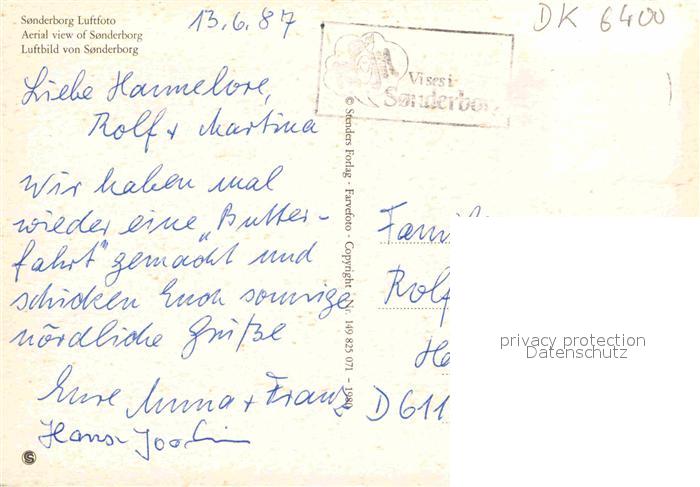 Sønderborg Luftfoto
Aerial view of Sønderborg
Luftbild von Sønderborg
13.6.87
DK 6400
Vi ses i
Sønderborg
Liebe Hannelore,
Rolf + Martina
Wir haben mal
wieder eine „Butter-
fahrt" gemacht und
schicken Euch sonnige
nördliche Grüße
Eure Anna + Franz
Hans-Joachim
© Stenders Forlag · Farvefoto · Copyright · Nr. 149 825 071 - 1980
Fami
Rolf
Ha
D 611
privacy protection
Datenschutz